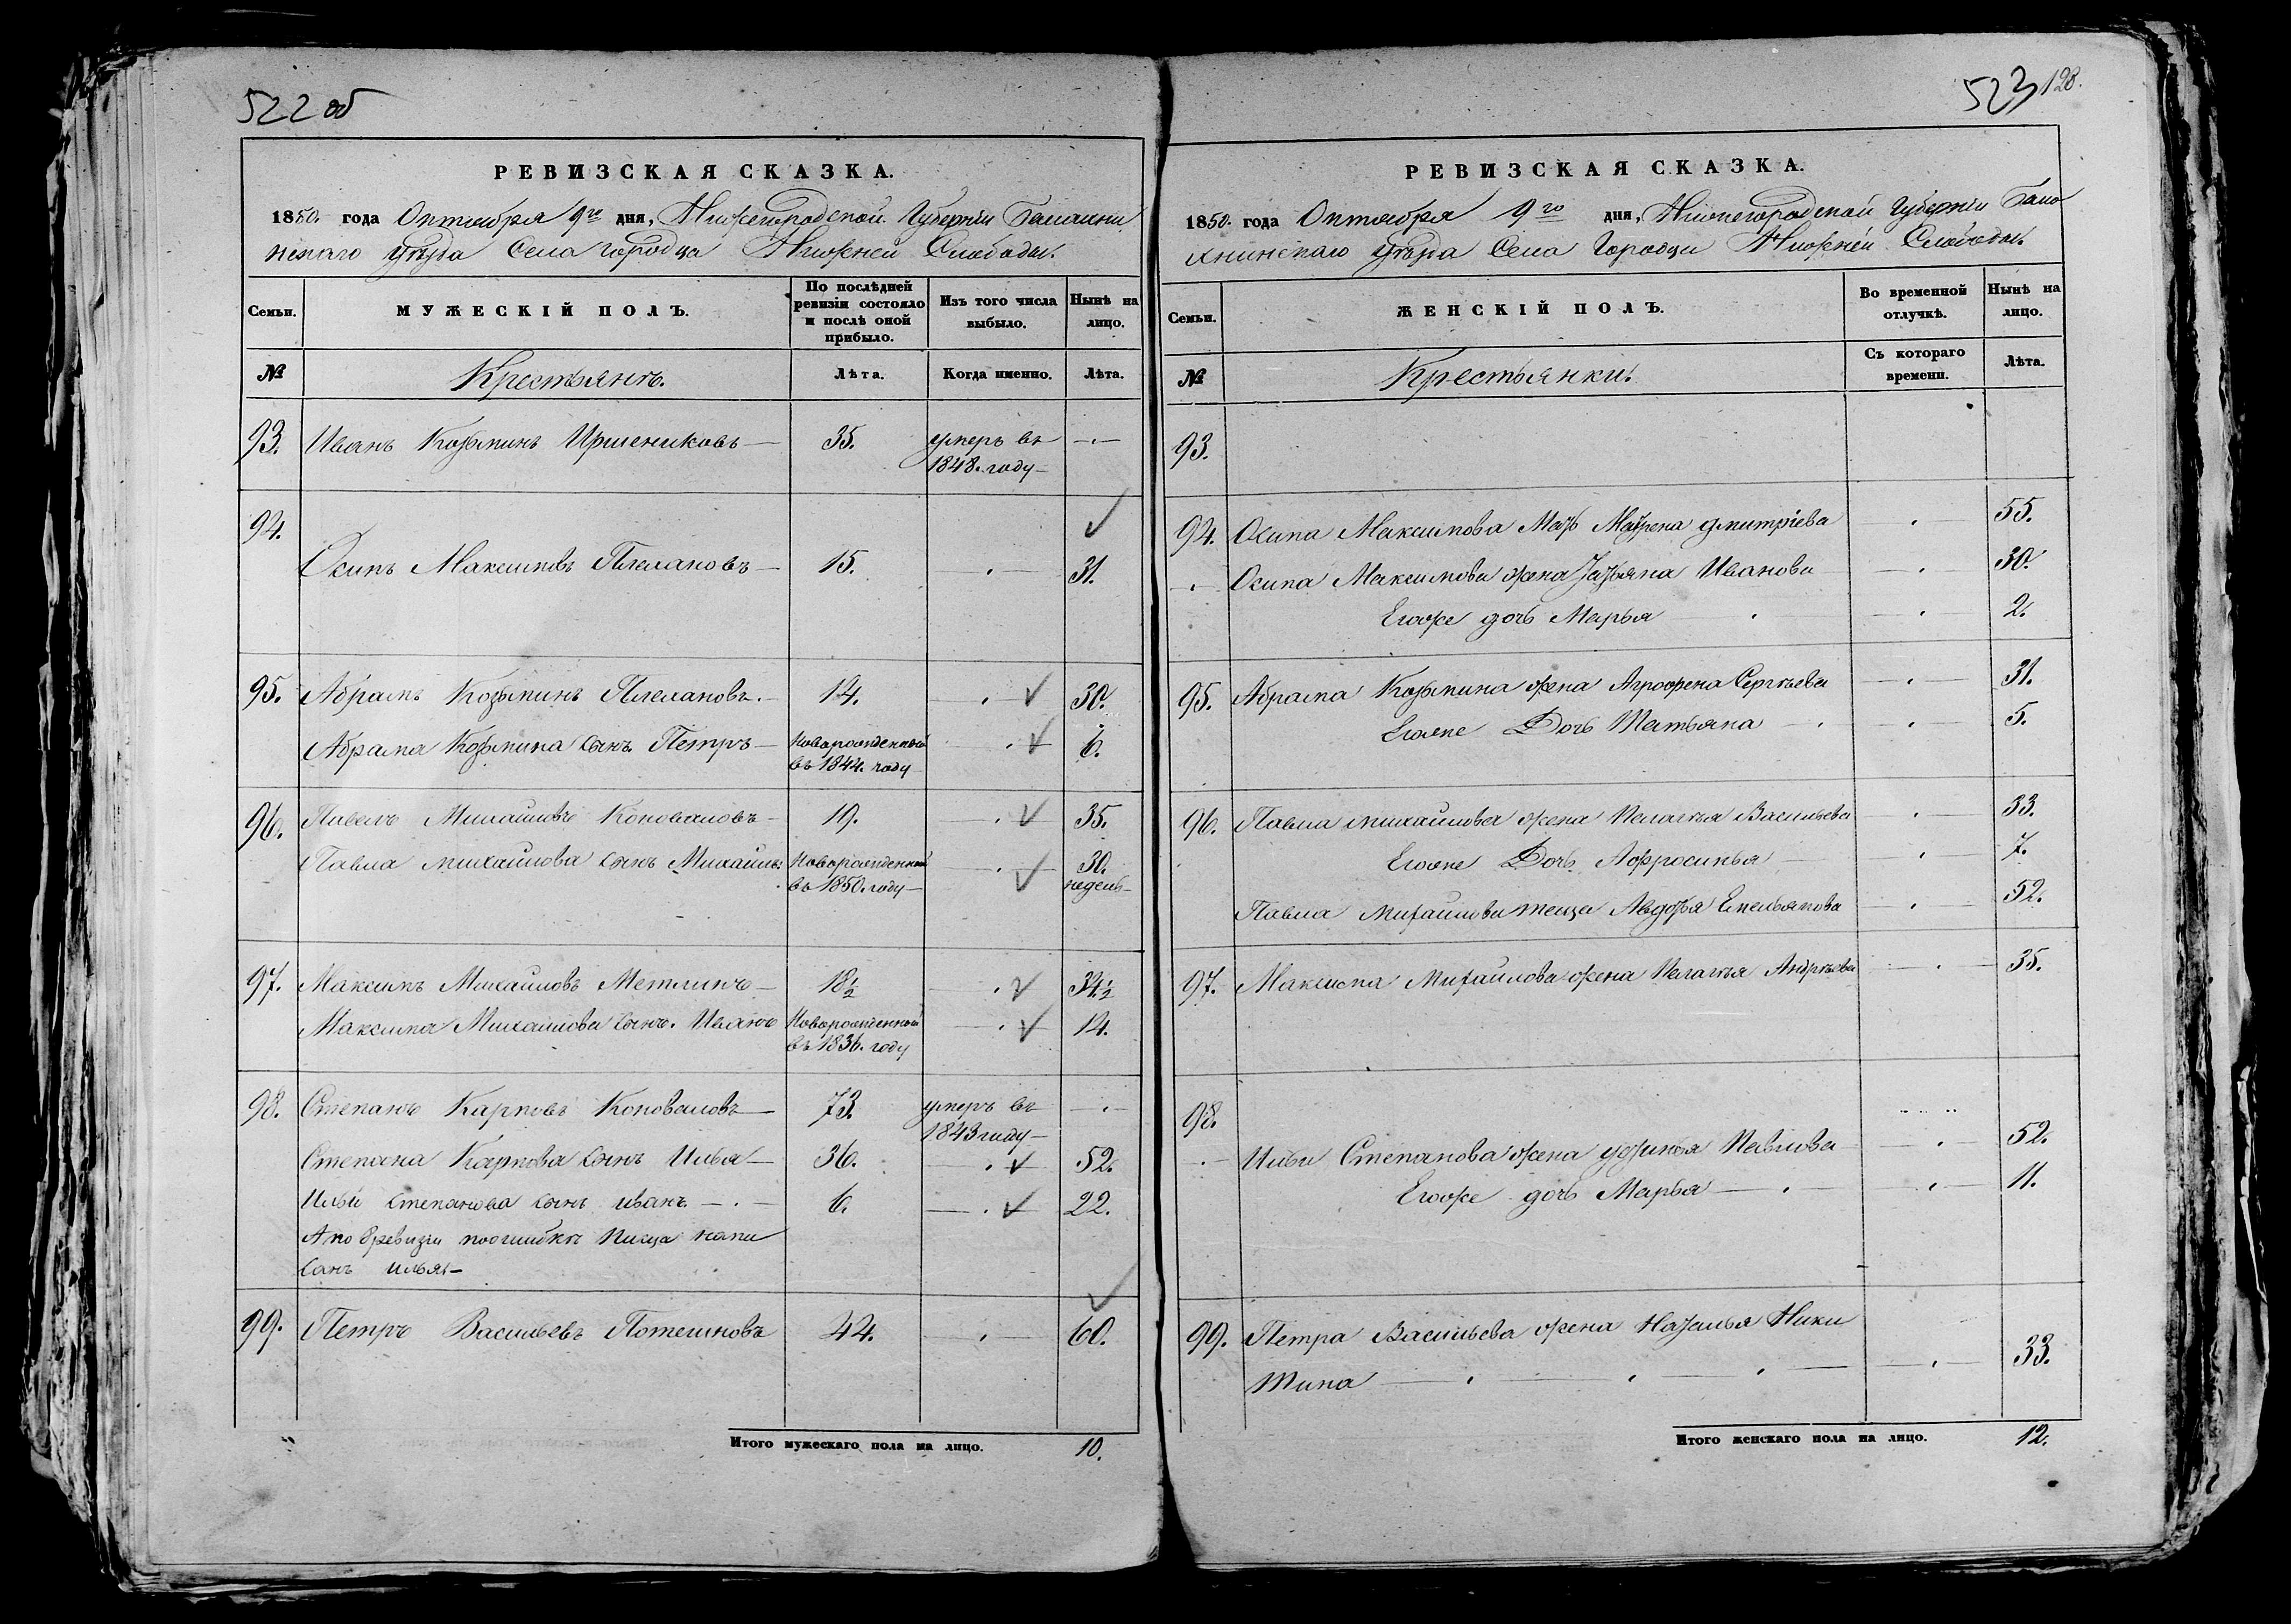 522 об
РЕВИЗСКАЯ СКАЗКА.
1850. года Октября 9го дня, Нижегородской Губернии Балахни
нскаго уѣзда Села городца Нижней Слободы.
Семьи.
МУЖЕСКІЙ ПОЛЪ.
По послѣдней ревизіи состояло и послѣ оной прибыло.
Изъ того числа выбыло.
Нынѣ на лицо.
№
Крестьянъ.
Лѣта.
Когда именно.
Лѣта.
93. Иванъ Козьминъ 35. умеръ въ
1848. году
94.
Осипъ Максимовъ Плехановъ 15. 31.
95. Абрамъ Козьминъ Плехановъ. 14. 30.
Абрама Козьмина сынъ Петръ Новорожденный 6.
въ 1844. году
96. Павелъ Михайловъ Коноваловъ 19. 35.
Павла михайлова сынъ Михайлъ Новорожденный 30.
въ 1850. году недель
97. Максимъ Михайловъ Метлинъ 18½ 34½
Максима Михайлова сынъ. Иванъ Новорожденный 14.
въ 1836. году
98. Степанъ Карповъ Коноваловъ 73. умеръ въ
1843 году
Степана Карпова сынъ Илья 36. 52.
Ильи степанова сынъ иванъ 6. 22.
А по 8 ревизіи поошибкѣ писца напи
санъ илья
99. Петръ Васильевъ Потехиновъ 44. 60.
Итого мужескаго пола на лицо. 10.
523 128.
РЕВИЗСКАЯ СКАЗКА.
1850. года Октября 9го дня, Нижегородской Губернии Бала
хнинскаго уѣзда Села Городца Нижней Слободы.
Семьи.
ЖЕНСКІЙ ПОЛЪ.
Во временной отлучкѣ.
Нынѣ на лицо.
№
Крестьянки.
Съ котораго времени.
Лѣта.
93.
94. Осипа Максимова Мать Матрена дмитріева 55.
Осипа Максимова жена Татьяна Иванова 30.
Егоже дочь Марья 2.
95. Абрама Козьмина жена Агрофена Сергѣева 31.
Егоже Дочь Татьяна 5.
96. Павла михайлова жена Пелагѣя Васильева 33.
Егоже Дочь Афросинья 7.
Павла Михайлова теща Авдотья Емельянова 52.
97. Максима Михайлова жена Пелагѣя Андрѣева 35.
98.
Ильи Степанова жена устинья Павлова 52.
Егоже дочь Марья 11.
99. Петра Васильева жена Наталья Ники
тина 33.
Итого женскаго пола на лицо. 12.